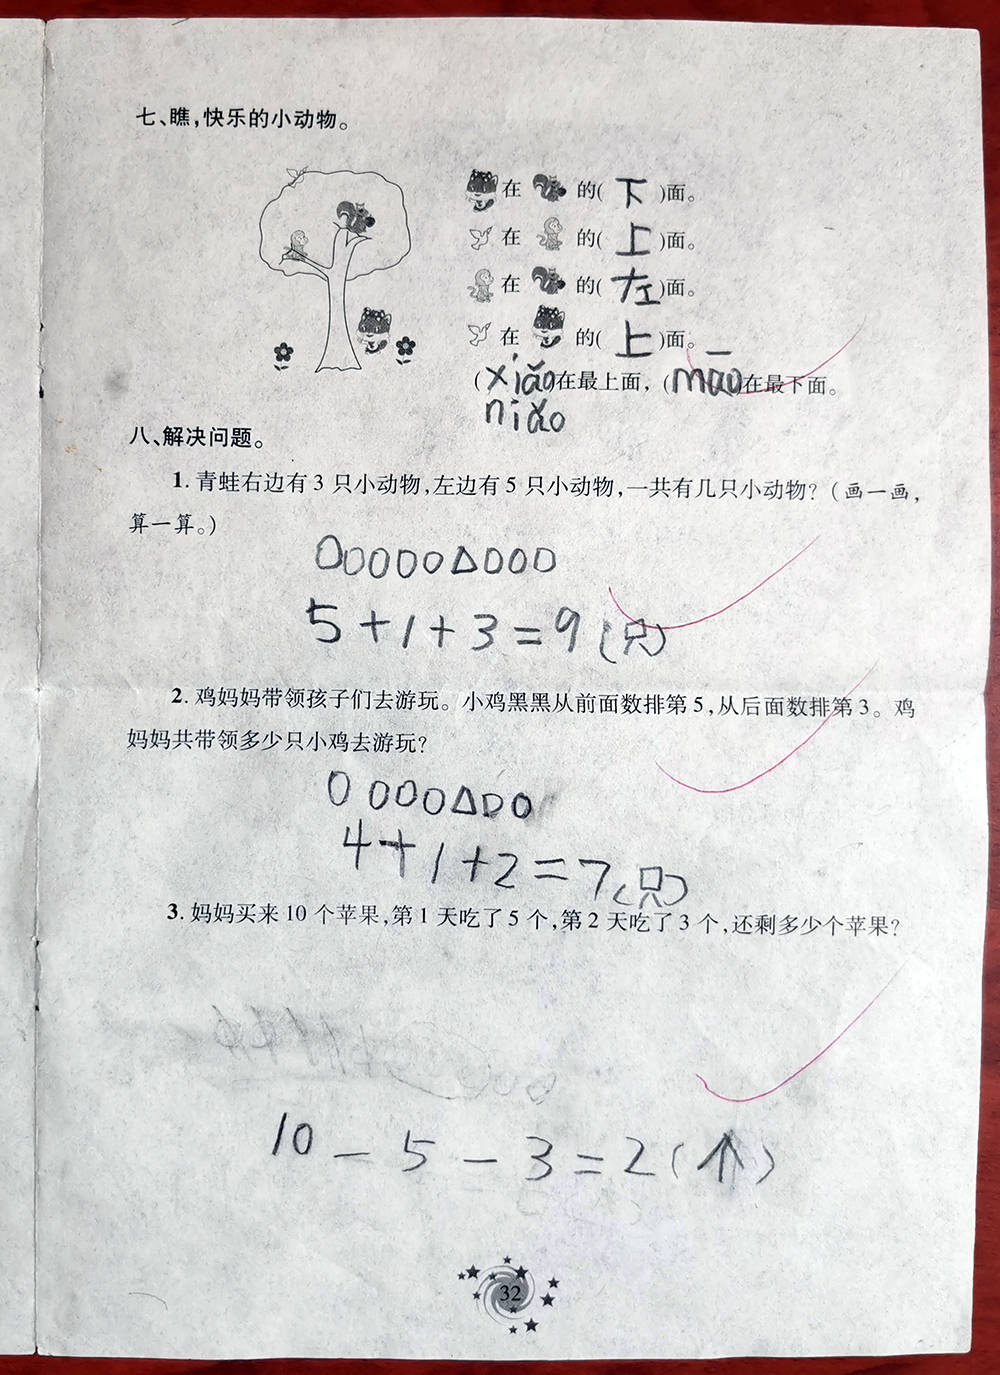 七、瞧,快乐的小动物。
在 的( 下 )面。
在 的( 上 )面。
在 的( 左 )面。
在 的( 上 )面。
(xiǎo niǎo)在最上面，(māo)在最下面。
八、解决问题。
1. 青蛙右边有3只小动物,左边有5只小动物,一共有几只小动物?(画一画,
算一算。)
5+1+3=9(只)
2. 鸡妈妈带领孩子们去游玩。小鸡黑黑从前面数排第5,从后面数排第3。鸡
妈妈共带领多少只小鸡去游玩?
4+1+2=7(只)
3. 妈妈买来10个苹果,第1天吃了5个,第2天吃了3个,还剩多少个苹果?
10-5-3=2(个)
32